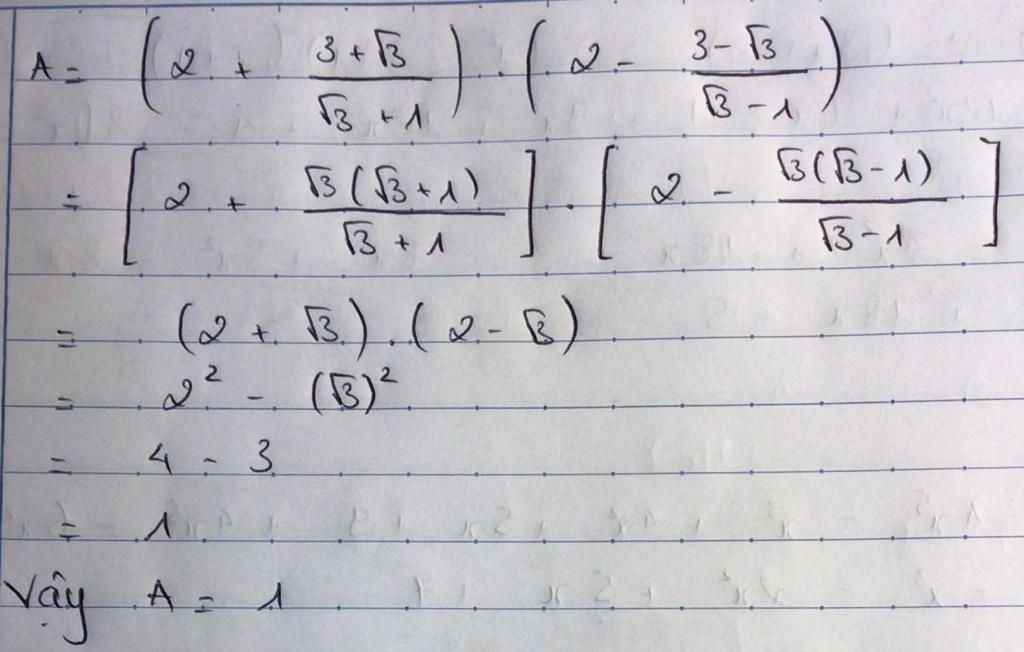 A = (2 + (3 + √3)/(√3 + 1)) . (2 - (3 - √3)/(√3 - 1))
= [2 + √3(√3 + 1)/(√3 + 1)] . [2 - √3(√3 - 1)/(√3 - 1)]
= (2 + √3) . (2 - √3)
= 2² - (√3)²
= 4 - 3
= 1
Vậy A = 1